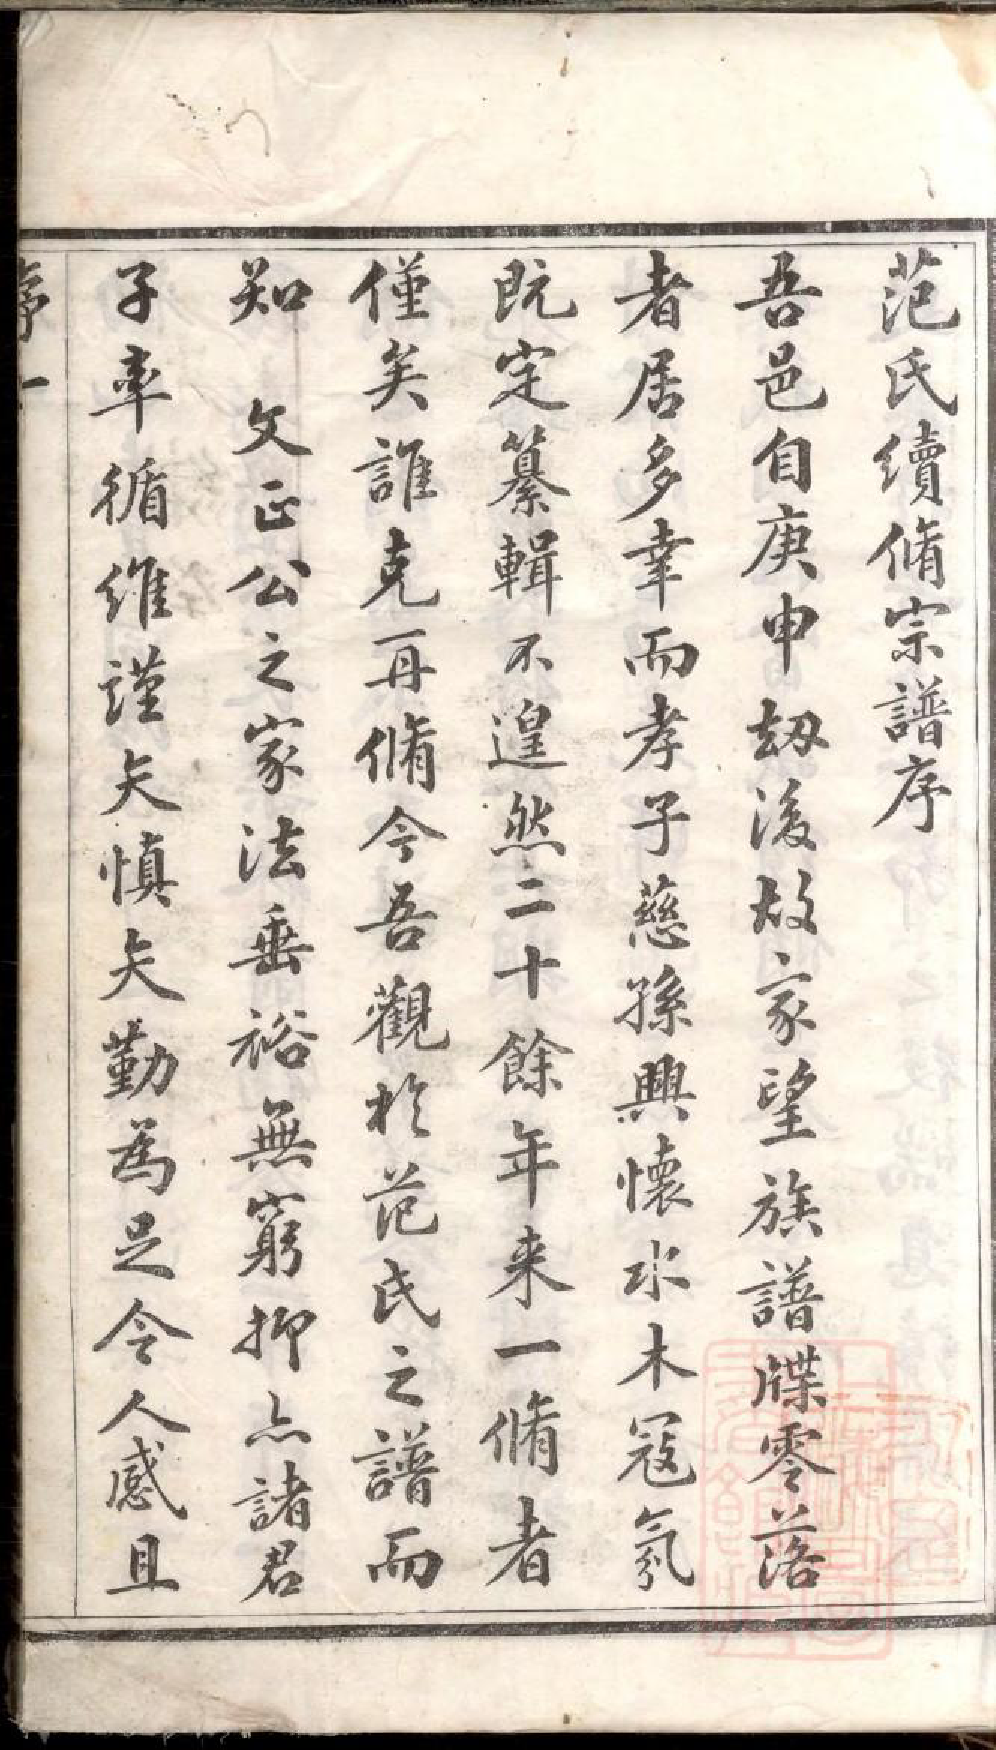 范氏續脩宗譜序
吾邑自庚申刼後故家望族譜牒零落
者居多幸而孝子慈孫興懷水木冦氛
既定纂輯不遑然二十餘年来一脩者
僅矣誰克再脩今吾觀於范氏之譜而
知 文正公之家法垂裕無窮抑亦諸君
子率循維謹矢慎矢勤為足令人感且
序一